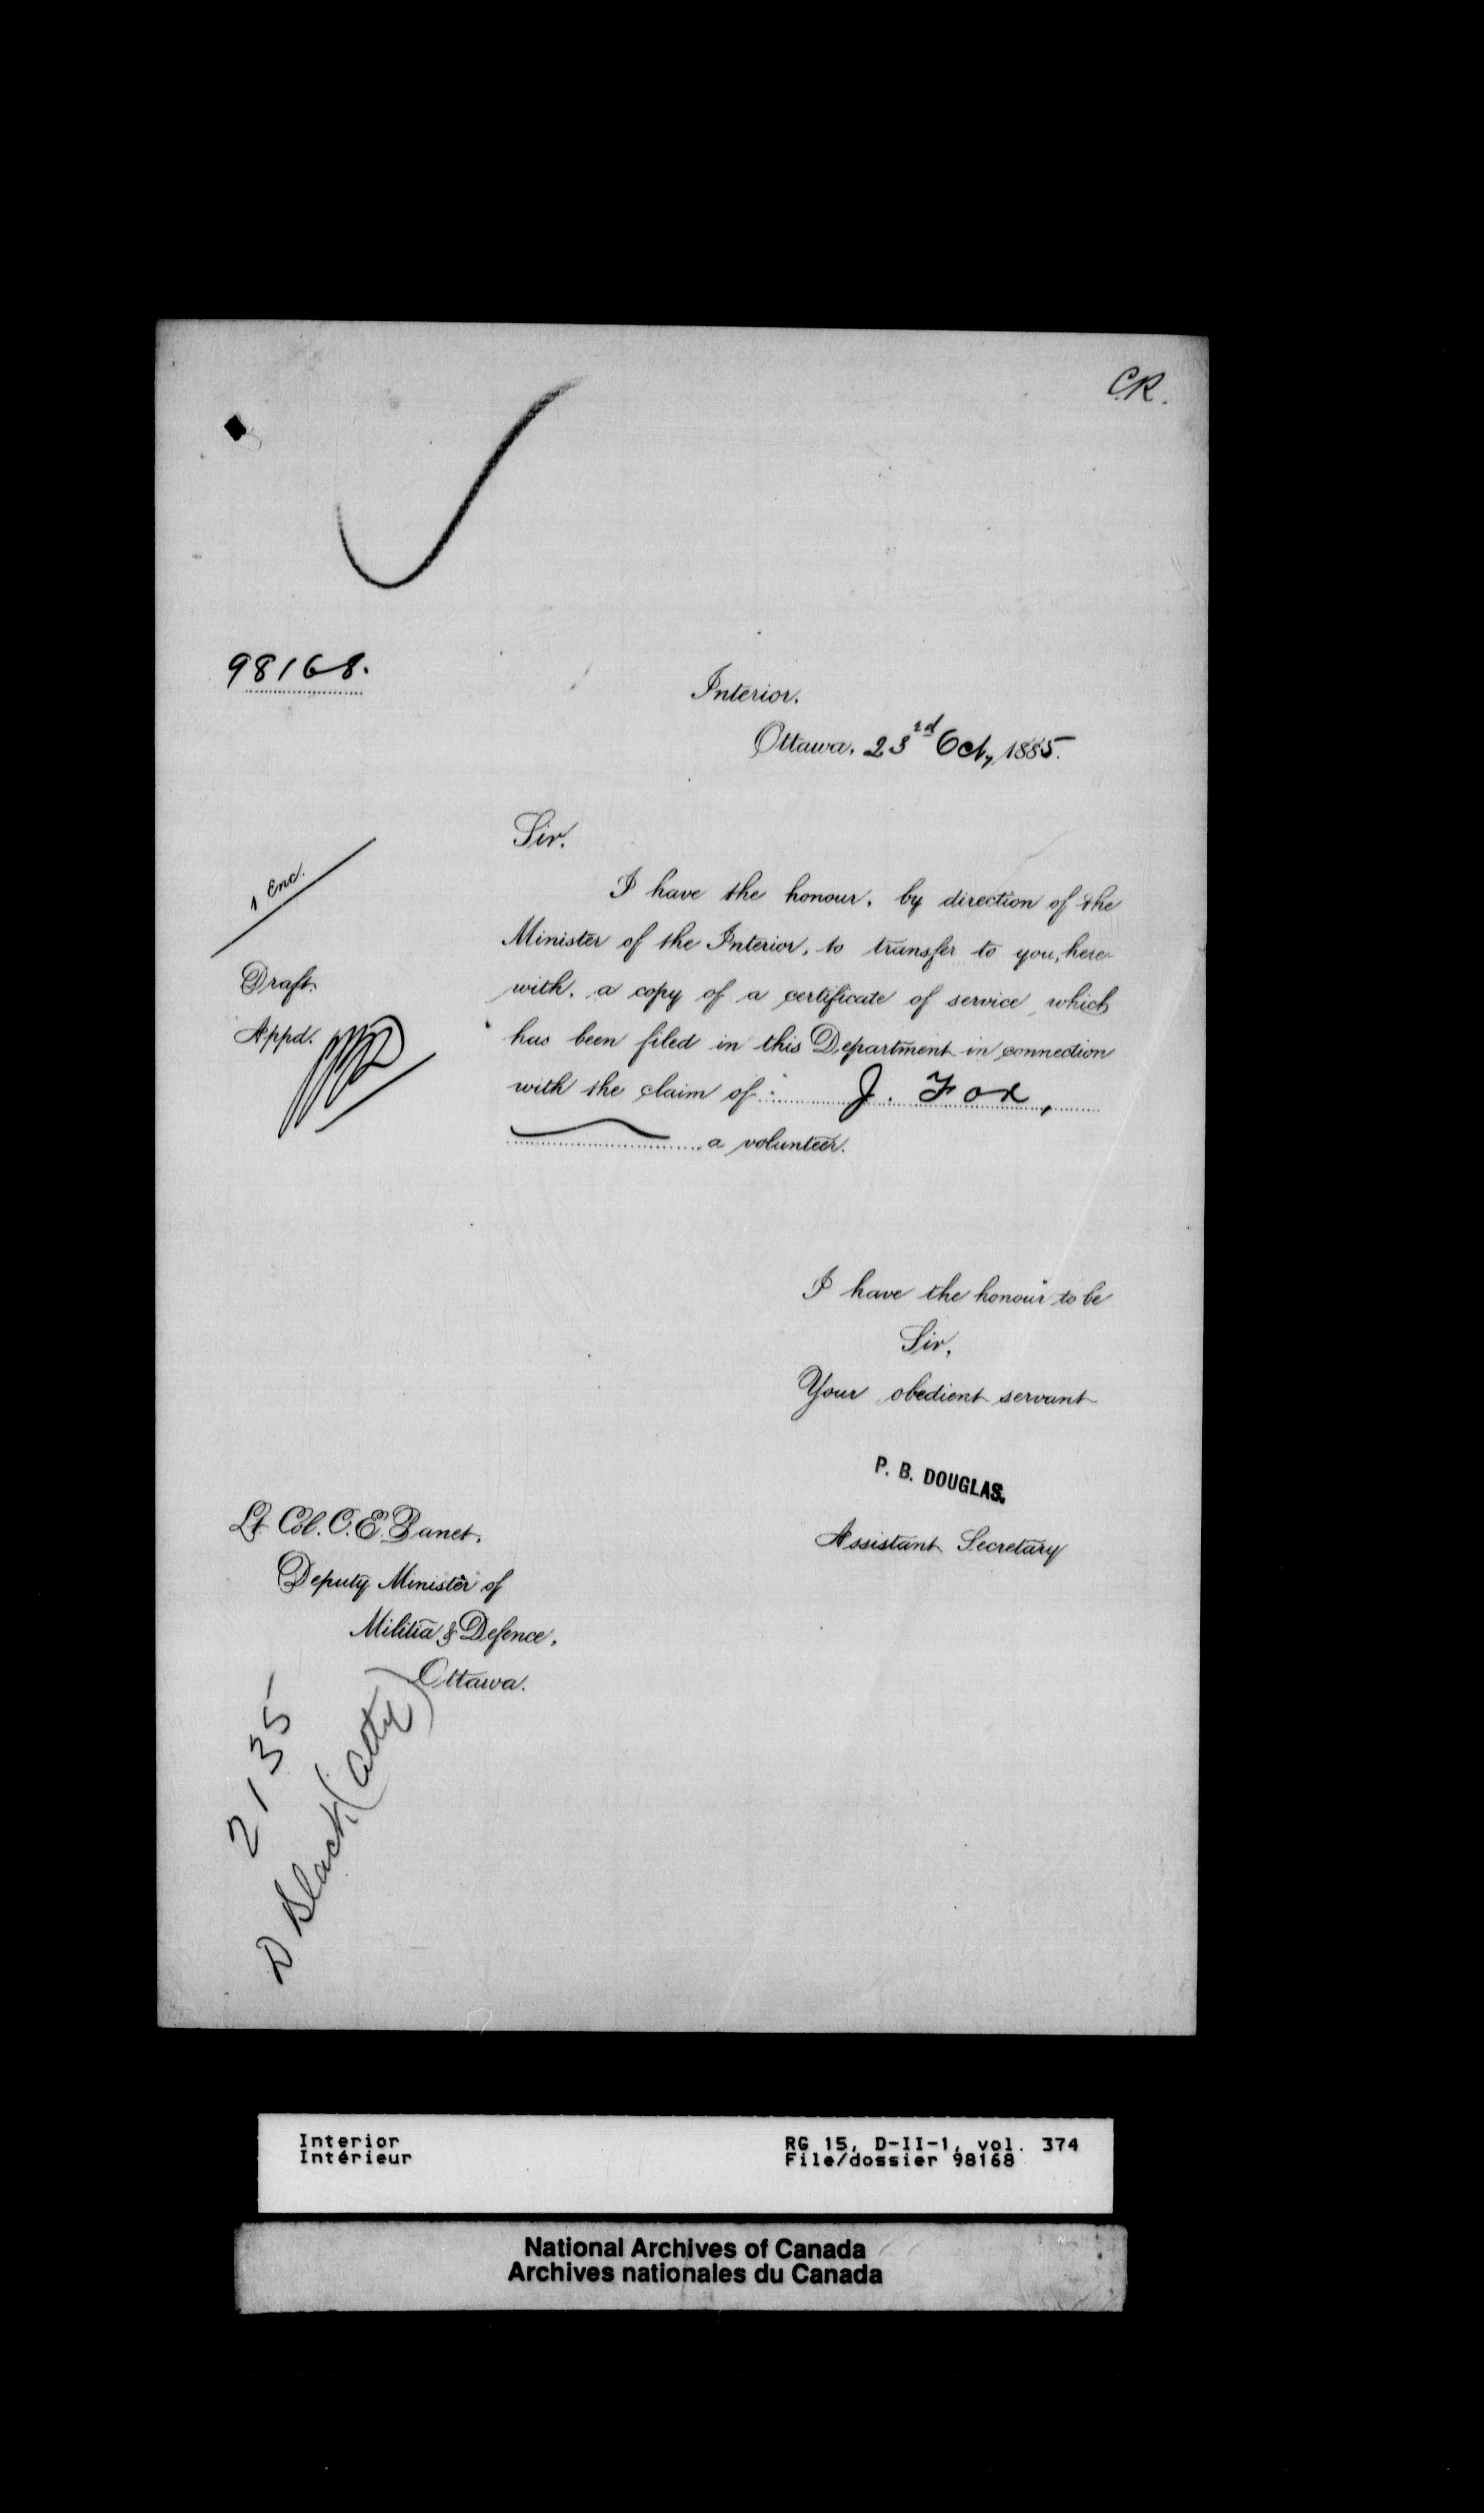 C.R.
98168.
Interior.
Ottawa, 23rd Oct, 1885.
Sir,
1 Enc.
I have the honour, by direction of the
Minister of the Interior, to transfer to you, here-
with, a copy of a certificate of service which
has been filed in this Department in connection
with the claim of J. Fox,
a volunteer.
Draft.
Appd.
I have the honour to be
Sir,
Your obedient servant
P. B. DOUGLAS.
Assistant Secretary
Lt Col. C. E. Panet,
Deputy Minister of
Militia & Defence,
Ottawa.
2135
D Black (Atty)
Interior
Intérieur
RG 15, D-II-1, vol. 374
File/dossier 98168
National Archives of Canada
Archives nationales du Canada